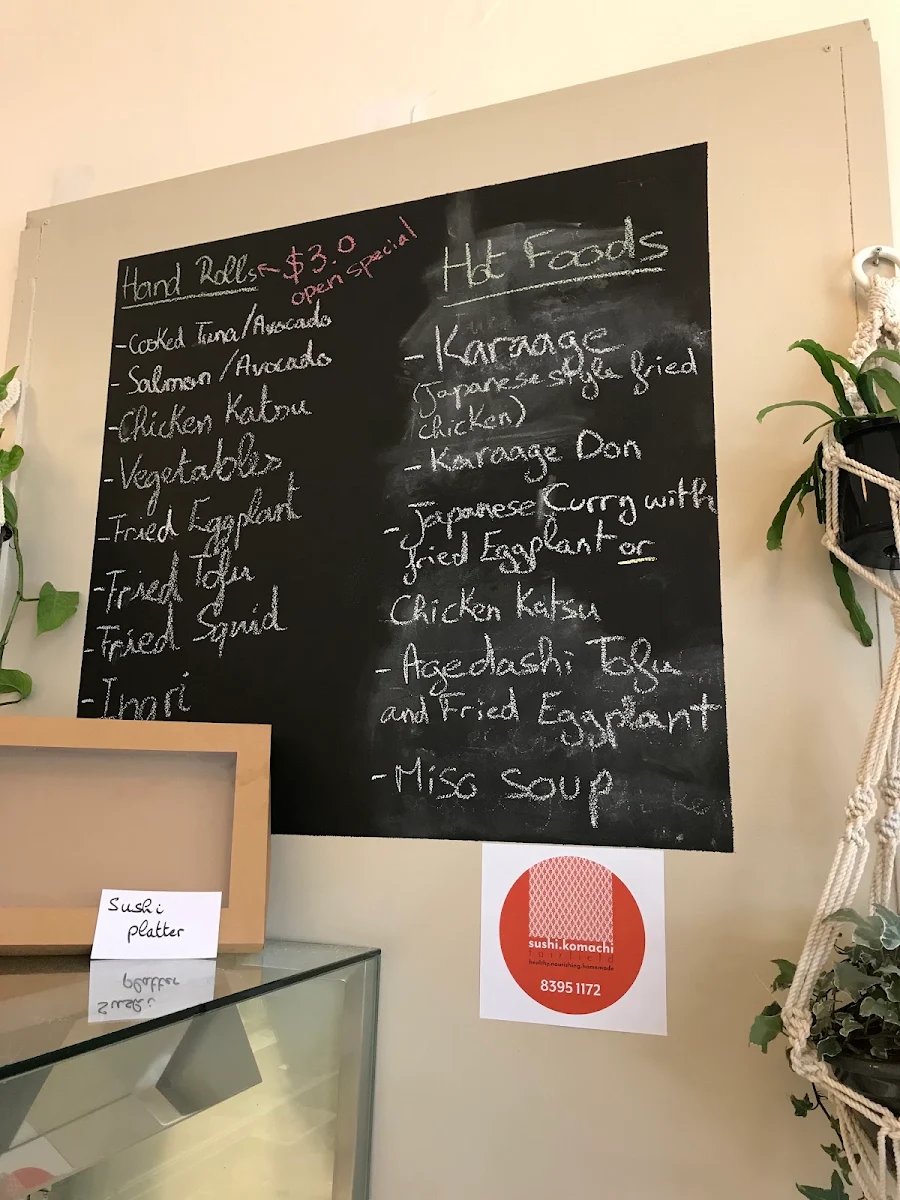 Hand Rolls
$3.0
open special
-Cooked Tuna/Avocado
-Salmon/Avocado
-Chicken Katsu
-Vegetables
-Fried Eggplant
-Fried Tofu
-Fried Squid
-Inari
Hot Foods
-Karaage
(Japanese style fried
chicken)
-Karaage Don
-Japanese Curry with
fried Eggplant or
Chicken Katsu
-Agedashi Tofu
and Fried Eggplant
-Miso Soup
Sushi
platter
sushi.komachi
fairfield
healthy.nourishing.homemade
8395 1172